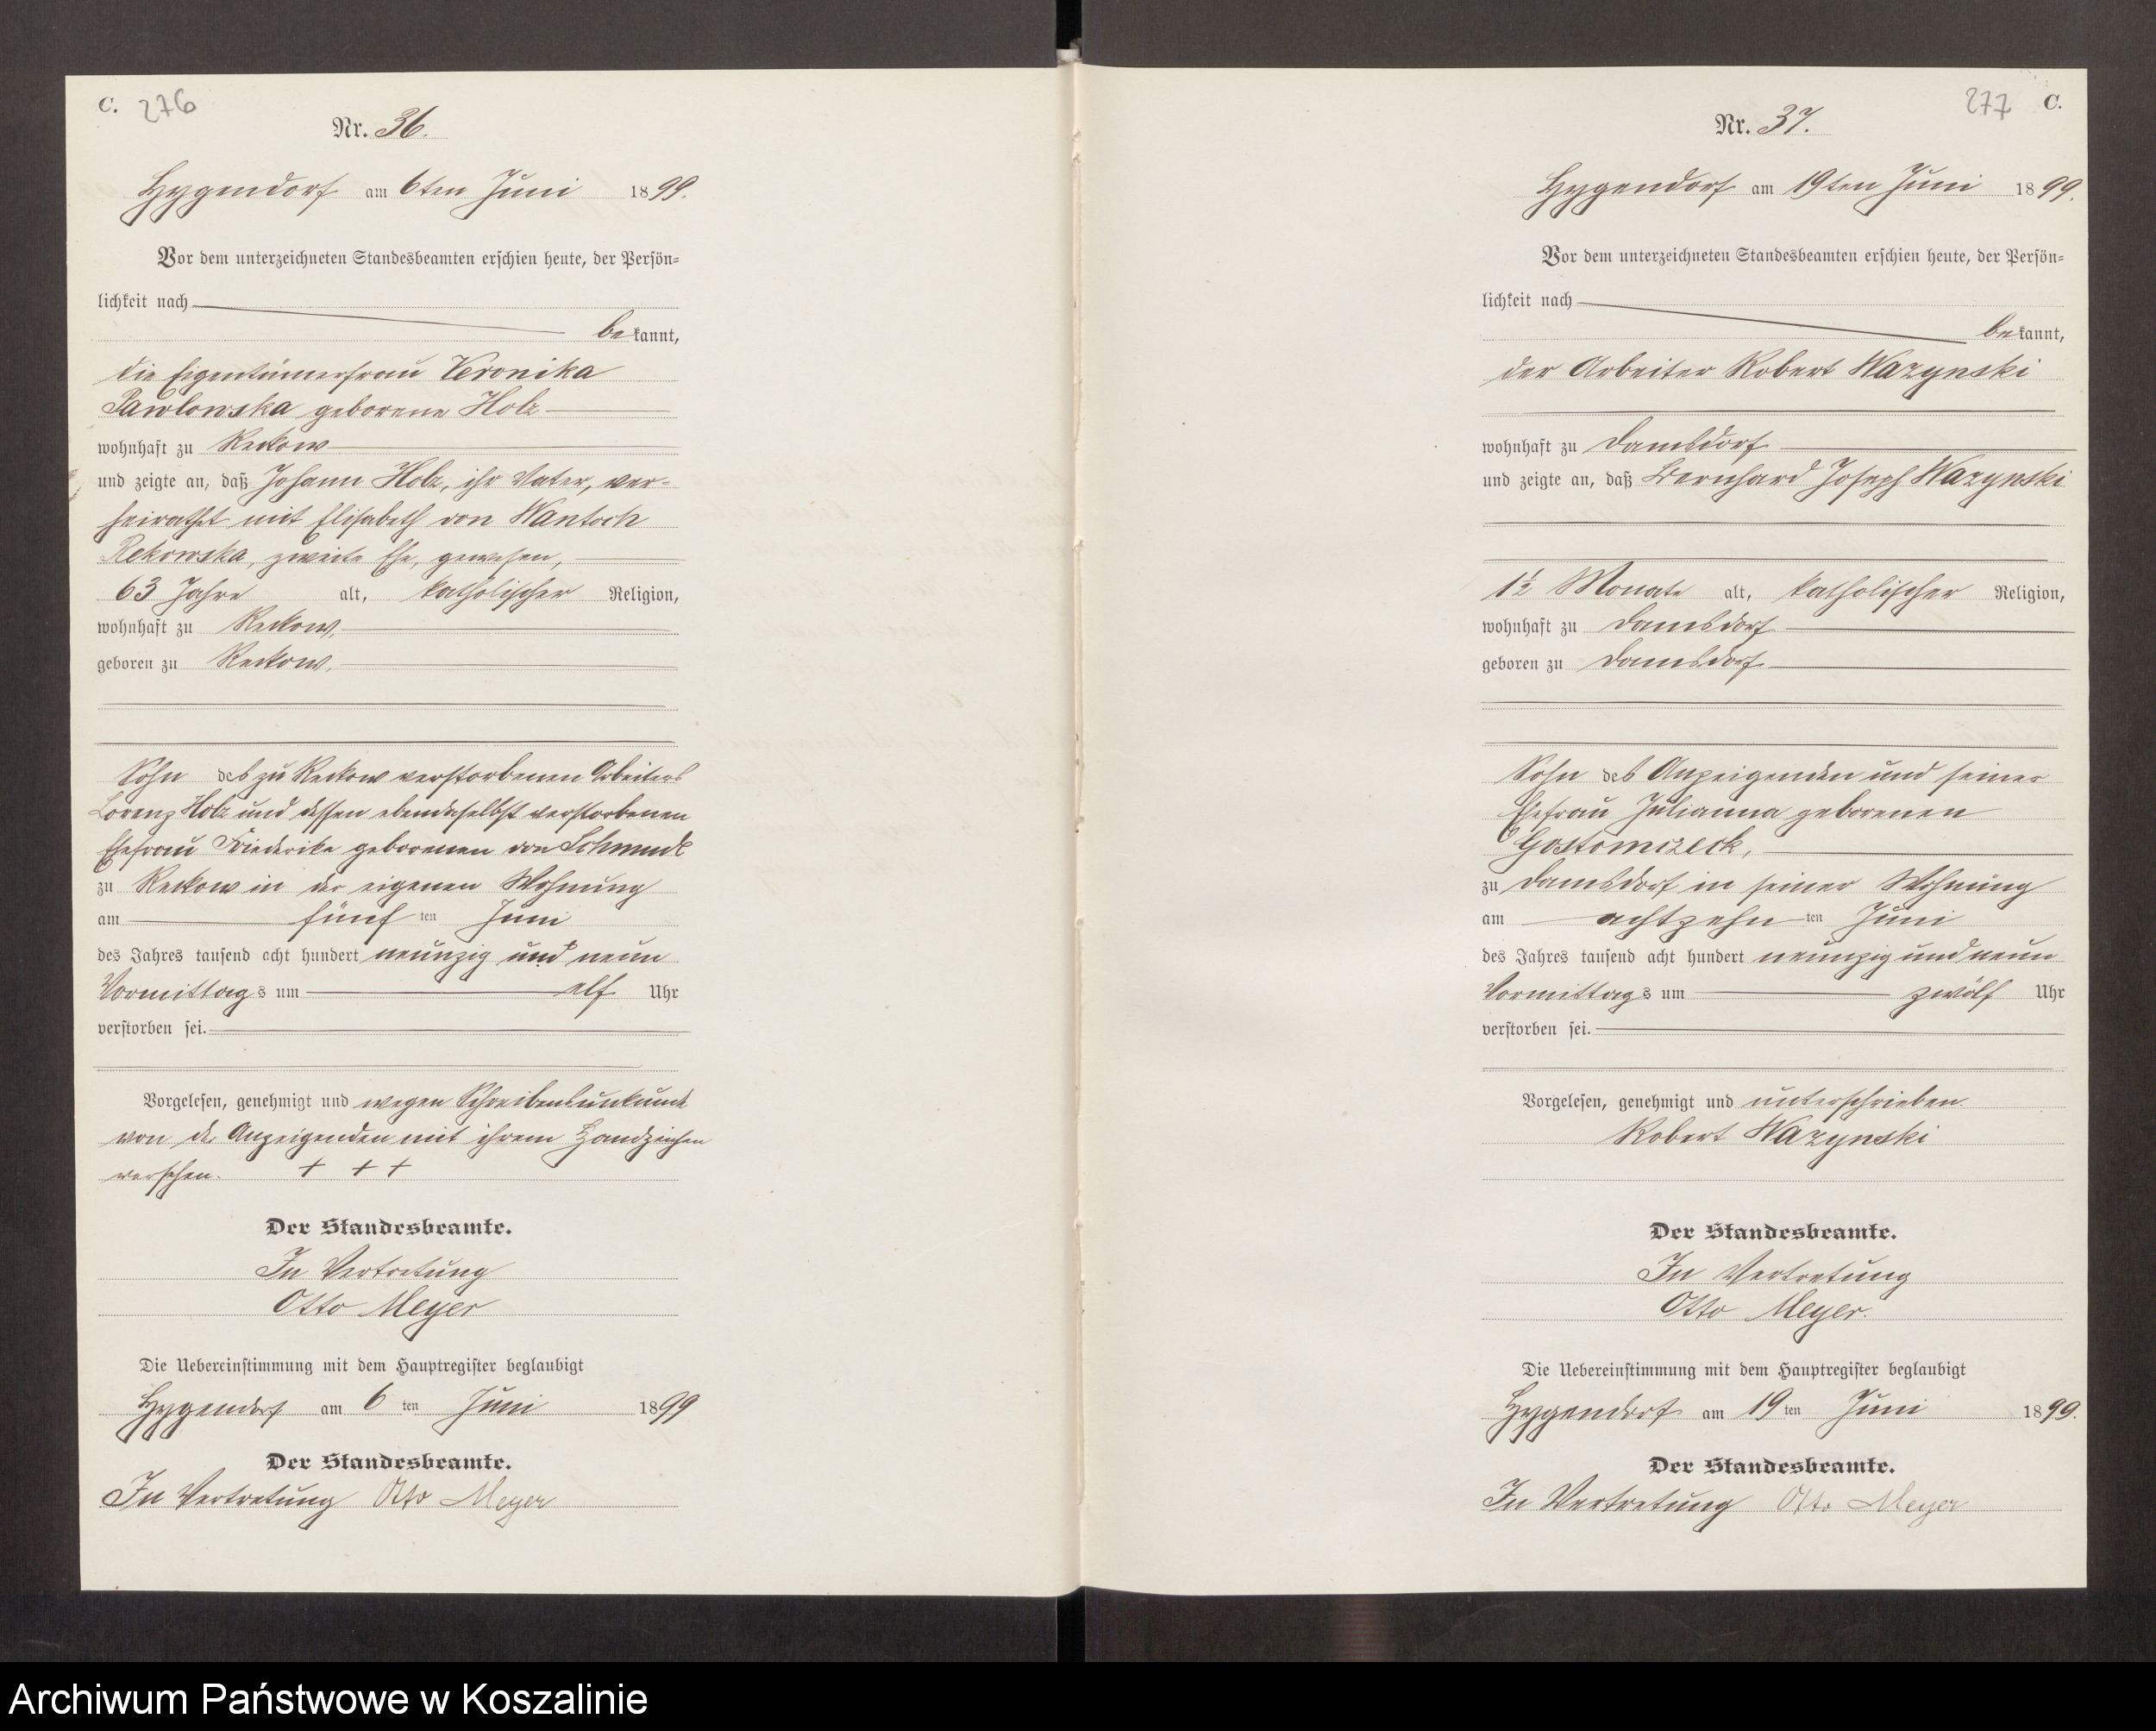 C. 276
Nr. 36.
Hygendorf am 6ten Juni 1899.
Vor dem unterzeichneten Standesbeamten erschien heute, der Persön-
lichkeit nach
bekannt,
die Eigentümerfrau Veronika
Pawlowska geborene Holz
wohnhaft zu Reckow
und zeigte an, daß Johann Holz, ihr Vater, ver-
heirathet mit Elisabeth von Wantoch
Rekowska, zweite Ehe, gewesen,
63 Jahre alt, katholischer Religion,
wohnhaft zu Reckow,
geboren zu Reckow,
Sohn des zu Reckow verstorbenen Arbeiters
Lorenz Holz und dessen ebendaselbst verstorbenen
Ehefrau Friederike geborenen von Schmude
zu Reckow in der eigenen Wohnung
am fünf ten Juni
des Jahres tausend acht hundert neunzig und neun
Vormittags um elf Uhr
verstorben sei.
Vorgelesen, genehmigt und wegen Schreibensunkunde
von der Anzeigenden mit ihrem Handzeichen
versehen. + + +
Der Standesbeamte.
In Vertretung
Otto Meyer
Die Uebereinstimmung mit dem Hauptregister beglaubigt
Hygendorf am 6 ten Juni 1899
Der Standesbeamte.
In Vertretung Otto Meyer
277 C.
Nr. 37.
Hygendorf am 19ten Juni 1899.
Vor dem unterzeichneten Standesbeamten erschien heute, der Persön-
lichkeit nach
bekannt,
der Arbeiter Robert Wazynski
wohnhaft zu Damsdorf
und zeigte an, daß Bernhard Joseph Wazynski
1½ Monate alt, katholischer Religion,
wohnhaft zu Damsdorf
geboren zu Damsdorf
Sohn des Anzeigenden und seiner
Ehefrau Julianna geborenen
Gostomczeck,
zu Damsdorf in seiner Wohnung
am achtzehn ten Juni
des Jahres tausend acht hundert neunzig und neun
Vormittags um zwölf Uhr
verstorben sei.
Vorgelesen, genehmigt und unterschrieben.
Robert Wazynski
Der Standesbeamte.
In Vertretung
Otto Meyer.
Die Uebereinstimmung mit dem Hauptregister beglaubigt
Hygendorf am 19 ten Juni 1899.
Der Standesbeamte.
In Vertretung Otto Meyer
Archiwum Państwowe w Koszalinie